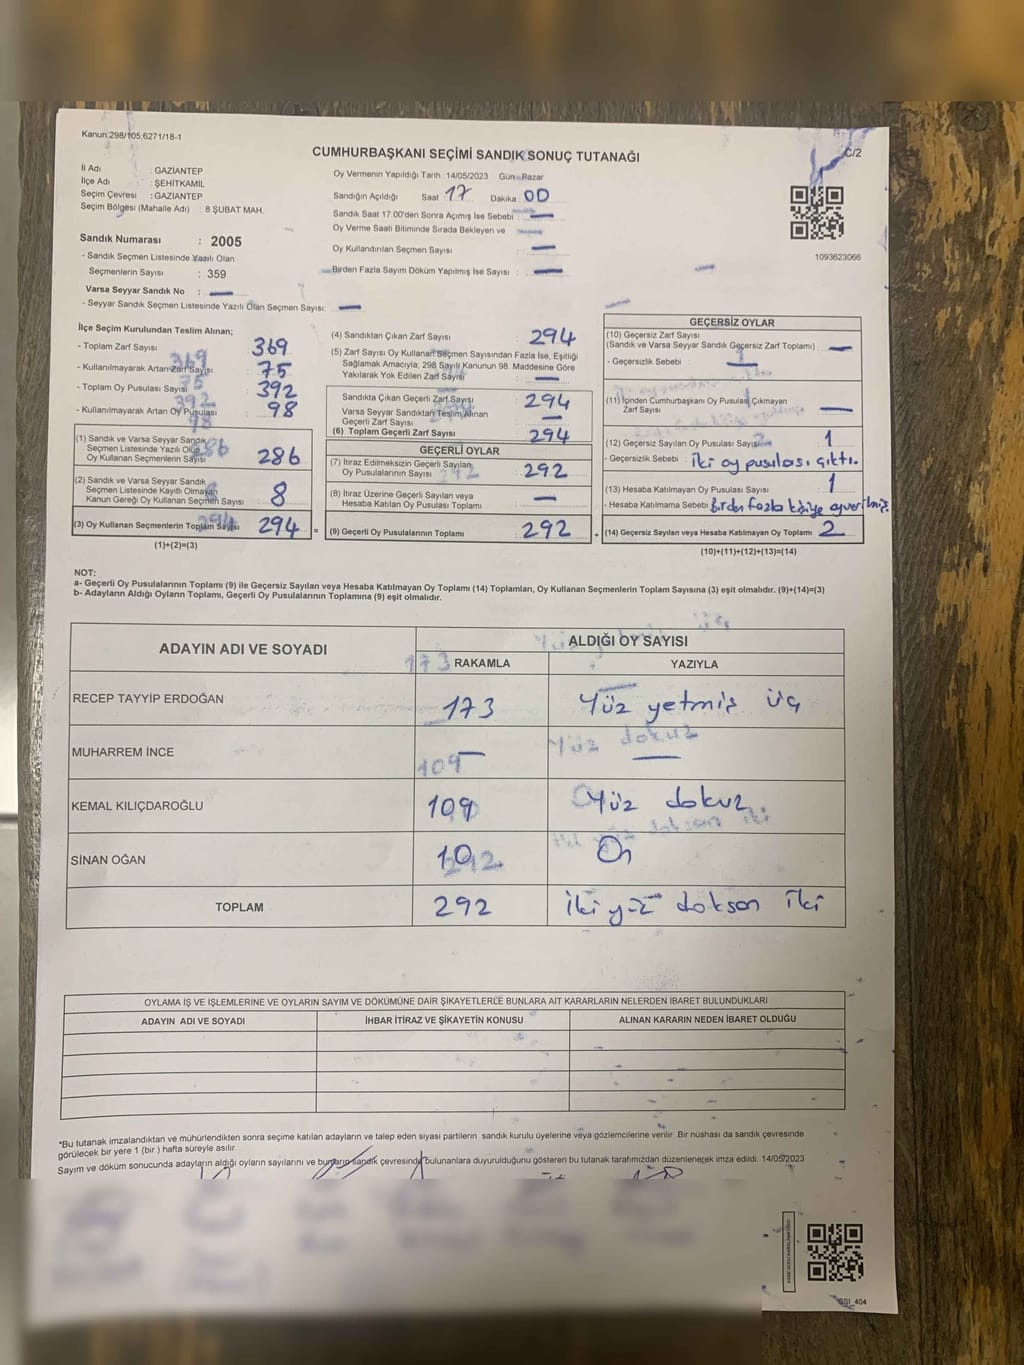 Kanun 298/105,6271/18-1
CUMHURBAŞKANI SEÇİMİ SANDIK SONUÇ TUTANAĞI
C/2
İl Adı : GAZİANTEP
İlçe Adı : ŞEHİTKAMİL
Seçim Çevresi : GAZİANTEP
Seçim Bölgesi (Mahalle Adı) : 8 ŞUBAT MAH.
Sandık Numarası : 2005
- Sandık Seçmen Listesinde Yazılı Olan
Seçmenlerin Sayısı : 359
Varsa Seyyar Sandık No : —
- Seyyar Sandık Seçmen Listesinde Yazılı Olan Seçmen Sayısı: —
Oy Vermenin Yapıldığı Tarih : 14/05/2023 Gün : Pazar
Sandığın Açıldığı Saat 17 Dakika : 00
Sandık Saat 17.00'den Sonra Açılmış İse Sebebi : —
Oy Verme Saati Bitiminde Sırada Bekleyen ve
Oy Kullandırılan Seçmen Sayısı : —
Birden Fazla Sayım Döküm Yapılmış İse Sayısı : —
1093623066
İlçe Seçim Kurulundan Teslim Alınan;
- Toplam Zarf Sayısı 369
- Kullanılmayarak Artan Zarf Sayısı 75
- Toplam Oy Pusulası Sayısı 392
- Kullanılmayarak Artan Oy Pusulası 98
(1) Sandık ve Varsa Seyyar Sandık
Seçmen Listesinde Yazılı Olup
Oy Kullanan Seçmenlerin Sayısı 286
(2) Sandık ve Varsa Seyyar Sandık
Seçmen Listesinde Kayıtlı Olmayan
Kanun Gereği Oy Kullanan Seçmen Sayısı 8
(3) Oy Kullanan Seçmenlerin Toplam Sayısı 294 =
(1)+(2)=(3)
(4) Sandıktan Çıkan Zarf Sayısı : 294
(5) Zarf Sayısı Oy Kullanan Seçmen Sayısından Fazla İse, Eşitliği
Sağlamak Amacıyla; 298 Sayılı Kanunun 98. Maddesine Göre
Yakılarak Yok Edilen Zarf Sayısı : —
Sandıkta Çıkan Geçerli Zarf Sayısı : 294
Varsa Seyyar Sandıktan Teslim Alınan
Geçerli Zarf Sayısı —
(6) Toplam Geçerli Zarf Sayısı : 294
GEÇERLİ OYLAR
(7) İtiraz Edilmeksizin Geçerli Sayılan
Oy Pusulalarının Sayısı : 292
(8) İtiraz Üzerine Geçerli Sayılan veya
Hesaba Katılan Oy Pusulası Toplamı : —
(9) Geçerli Oy Pusulalarının Toplamı : 292 +
GEÇERSİZ OYLAR
(10) Geçersiz Zarf Sayısı
(Sandık ve Varsa Seyyar Sandık Geçersiz Zarf Toplamı) : —
- Geçersizlik Sebebi : —
(11) İçinden Cumhurbaşkanı Oy Pusulası Çıkmayan
Zarf Sayısı : —
(12) Geçersiz Sayılan Oy Pusulası Sayısı 1
- Geçersizlik Sebebi : İki oy pusulası çıktı.
(13) Hesaba Katılmayan Oy Pusulası Sayısı : 1
- Hesaba Katılmama Sebebi : Birden fazla kişiye oy verilmiş
(14) Geçersiz Sayılan veya Hesaba Katılmayan Oy Toplamı 2
(10)+(11)+(12)+(13)=(14)
NOT:
a- Geçerli Oy Pusulalarının Toplamı (9) ile Geçersiz Sayılan veya Hesaba Katılmayan Oy Toplamı (14) Toplamları, Oy Kullanan Seçmenlerin Toplam Sayısına (3) eşit olmalıdır. (9)+(14)=(3)
b- Adayların Aldığı Oyların Toplamı, Geçerli Oy Pusulalarının Toplamına (9) eşit olmalıdır.
ADAYIN ADI VE SOYADI ALDIĞI OY SAYISI
RAKAMLA YAZIYLA
RECEP TAYYİP ERDOĞAN 173 Yüz yetmiş üç
MUHARREM İNCE — —
KEMAL KILIÇDAROĞLU 109 Yüz dokuz
SİNAN OĞAN 10 On
TOPLAM 292 İki yüz doksan iki
OYLAMA İŞ VE İŞLEMLERİNE VE OYLARIN SAYIM VE DÖKÜMÜNE DAİR ŞİKAYETLERLE BUNLARA AİT KARARLARIN NELERDEN İBARET BULUNDUKLARI
ADAYIN ADI VE SOYADI İHBAR İTİRAZ VE ŞİKAYETİN KONUSU ALINAN KARARIN NEDEN İBARET OLDUĞU
*Bu tutanak imzalandıktan ve mühürlendikten sonra seçime katılan adayların ve talep eden siyasi partilerin sandık kurulu üyelerine veya gözlemcilerine verilir. Bir nüshası da sandık çevresinde
görülecek bir yere 1 (bir) hafta süreyle asılır.
Sayım ve döküm sonucunda adayların aldığı oyların sayılarını ve bunların sandık çevresinde bulunanlara duyurulduğunu gösteren bu tutanak tarafımızdan düzenlenerek imza edildi. 14/05/2023
SSI_404